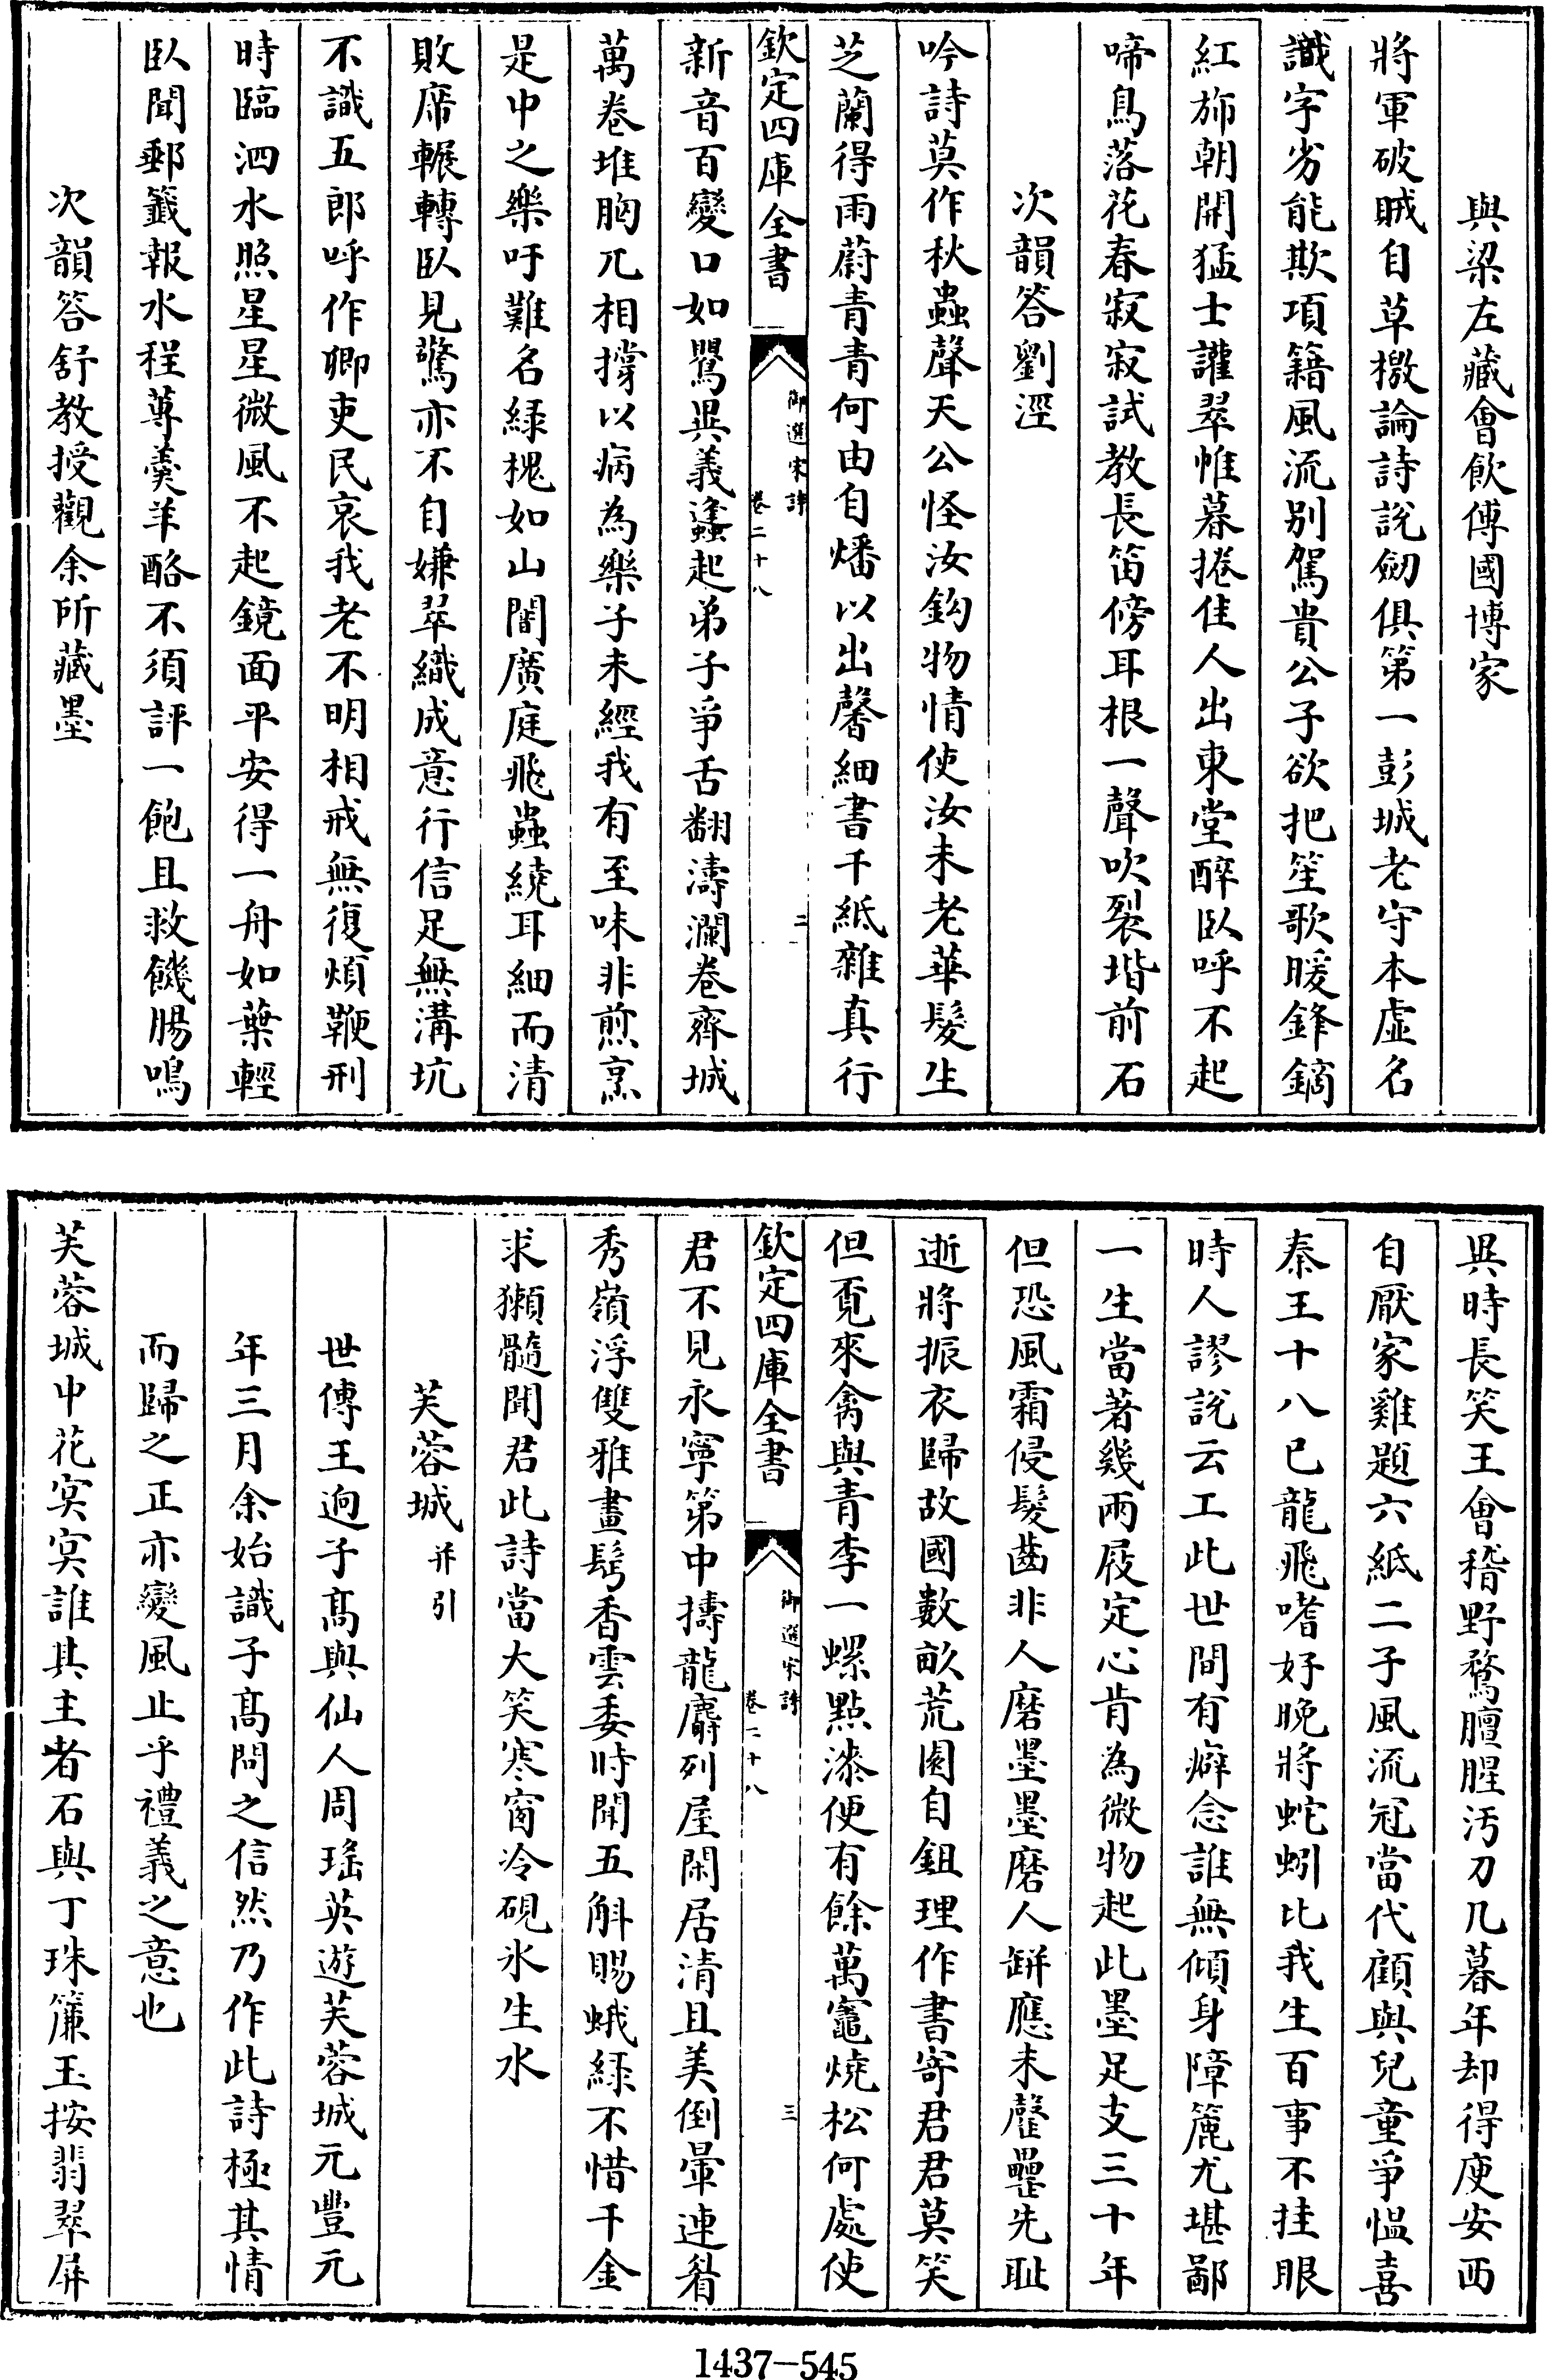 與梁左藏會飲傅國博家
將軍破賊自草檄論詩說劒俱第一彭城老守本虛名
識字劣能欺項籍風流别駕貴公子欲把笙歌暖鋒鏑
紅斾朝開猛士讙翠帷暮捲佳人出東堂醉臥呼不起
啼鳥落花春寂寂試教長笛傍耳根一聲吹裂堦前石
次韻答劉涇
吟詩莫作秋蟲聲天公怪汝鈎物情使汝未老華髮生
芝蘭得雨蔚青青何由自燔以出馨細書千紙雜真行
欽定四庫全書
御選宋詩
卷二十八
二
新音百變口如鸎異義蠭起弟子爭舌翻濤瀾卷齊城
萬卷堆胸兀相撐以病為樂子未經我有至味非煎烹
是中之樂吁難名緑槐如山闇廣庭飛蟲繞耳細而清
敗席輾轉臥見驚亦不自嫌翠織成意行信足無溝坑
不識五郎呼作卿吏民哀我老不明相戒無復煩鞭刑
時臨泗水照星星微風不起鏡面平安得一舟如葉輕
臥聞郵籤報水程蓴羮羊酪不須評一飽且救饑腸鳴
次韻答舒教授觀余所藏墨
異時長笑王會稽野鶩膻腥汚刀几暮年却得庾安西
自厭家雞題六紙二子風流冠當代顧與兒童爭慍喜
秦王十八已龍飛嗜好晚將蛇蚓比我生百事不挂眼
時人謬說云工此世間有癖念誰無傾身障簏尤堪鄙
一生當著幾兩屐定心肯為微物起此墨足支三十年
但恐風霜侵髮齒非人磨墨墨磨人缾應未罄罍先耻
逝將振衣歸故國數畝荒園自鉏理作書寄君君莫笑
但覓來禽與青李一螺點漆便有餘萬竈燒松何處使
欽定四庫全書
御選宋詩
卷二十八
三
君不見永寧第中擣龍麝列屋閑居清且美倒暈連眉
秀嶺浮雙雅畫鬂香雲委時聞五斛賜蛾緑不惜千金
求獺髓聞君此詩當大笑寒窗冷硯氷生水
芙蓉城并引
世傳王迥子髙與仙人周瑤英遊芙蓉城元豐元
年三月余始識子髙問之信然乃作此詩極其情
而歸之正亦變風止乎禮義之意也
芙蓉城中花㝠㝠誰其主者石與丁珠簾玉按翡翠屏
1437-545